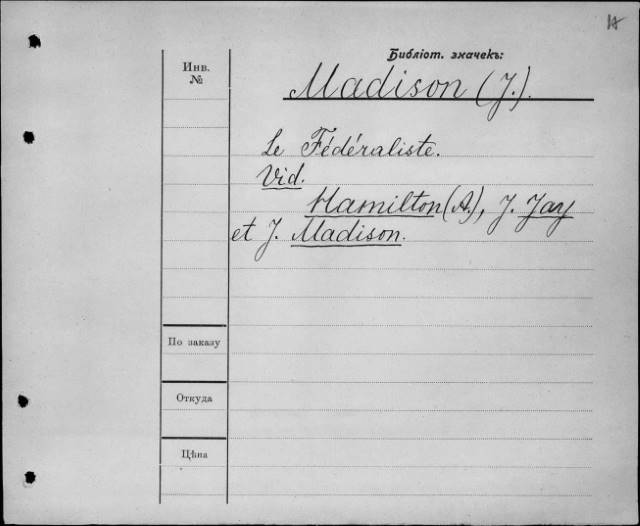 Библіот. значекъ:
Инв.
№
Madison (J.).
Le Fédéraliste.
Vid.
Hamilton (A.), J. Jay
et J. Madison.
По заказу
Откуда
Цѣна